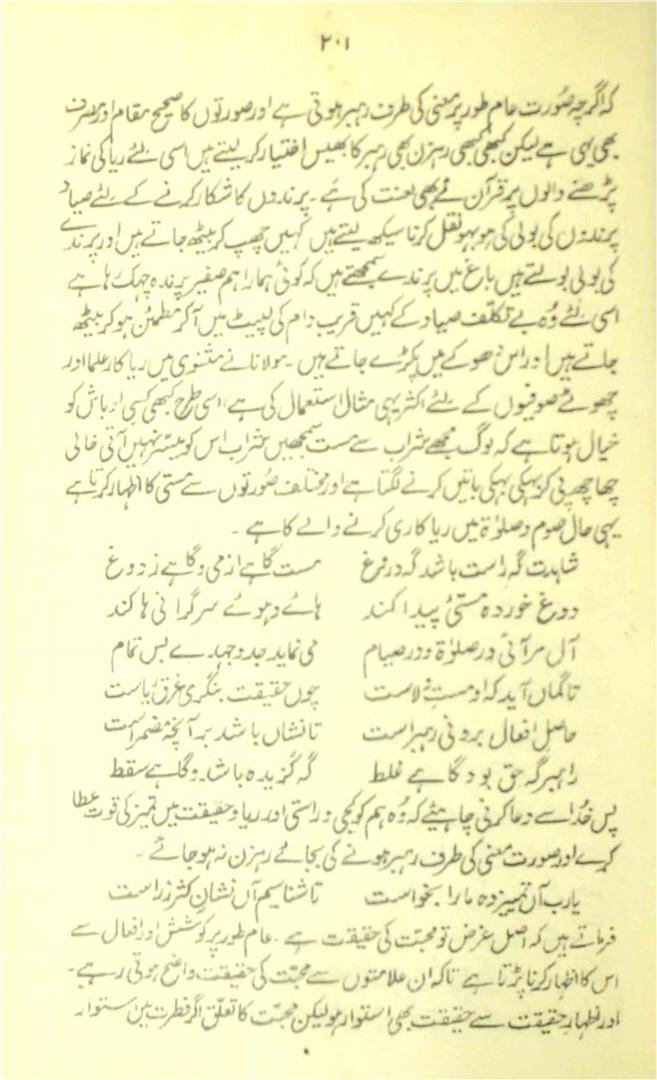 ۲۰۱
کہ اگرچہ صُورت عام طور پر معنی کی طرف رہبر ہوتی ہے اور صورتوں کا صحیح مقام اور مصرف
بھی یہی ہے لیکن کبھی کبھی رہزن بھی رہبر کا بھیس اختیار کر لیتے ہیں اسی لئے ریا کی نماز
پڑھنے والوں پر قرآن نے بھی لعنت کی ہے۔ پرندوں کا شکار کرنے کے لئے صیاد
پرندوں کی بولی کی ہو بہو نقل کرنا سیکھ لیتے ہیں کہیں چھپ کر بیٹھ جاتے ہیں اور پرندے
کی بولی بولتے ہیں باغ میں پرندے سمجھتے ہیں کہ کوئی ہمارا ہم صفیر پرندہ چہک رہا ہے
اسی لئے وُہ بے تکلف صیاد کے کہیں قریب دام کی لپیٹ میں آ کر مطمئن ہو کر بیٹھ
جاتے ہیں اور اس دھوکے میں پکڑے جاتے ہیں۔ مولانا نے مثنوی میں ریا کار علما اور
جھوٹے صوفیوں کے لئے اکثر یہی مثال استعمال کی ہے، اسی طرح کبھی کسی اوباش کو
خیال ہوتا ہے کہ لوگ مجھے شراب سے مست سمجھیں شراب اس کو میسّر نہیں آتی خالی
چھاچھ پی کر بہکی بہکی باتیں کرنے لگتا ہے اور مختلف صُورتوں سے مستی کا اظہار کرتا ہے
یہی حال صوم و صلوٰۃ میں ریا کاری کرنے والے کا ہے۔
شاہدت گہ راست باشد گہ دروغ مست گاہے از می و گاہے ز دوغ
دوغ خوردہ مستیٔ پیدا کند ہاے و ہوے سرگرانی ہا کند
آں مرآئی در صلوٰۃ و در صیام می نماید جد و جہدے بس تمام
تا گماں آید کہ او مست ولاست چوں حقیقت بنگری غرق ریاست
حاصل افعال برونی رہبر است تا نشاں باشد بر آنچہ مضمر است
راہبر گہ حق بود گاہے غلط گہ گزیدہ باشد و گاہے سقط
پس خُدا سے دعا کرنی چاہیئے کہ وُہ ہم کو کجی و راستی اور ریا و حقیقت میں تمیز کی قوت عطا
کرے اور صورت معنی کی طرف رہبر ہونے کی بجائے رہزن نہ ہو جائے۔
یارب آں تمییز دہ ما را بخواست تا شناسیم آں نشان کژ ز راست
فرماتے ہیں کہ اصل غرض تو محبّت کی حقیقت ہے۔ عام طور پر کوشش اور افعال سے
اس کا اظہار کرنا پڑتا ہے تاکہ ان علامتوں سے محبّت کی حقیقت واضح ہوتی رہے۔
اور اظہارِ حقیقت سے حقیقت بھی استوار ہو لیکن محبّت کا تعلّق اگر فطرت میں استوار